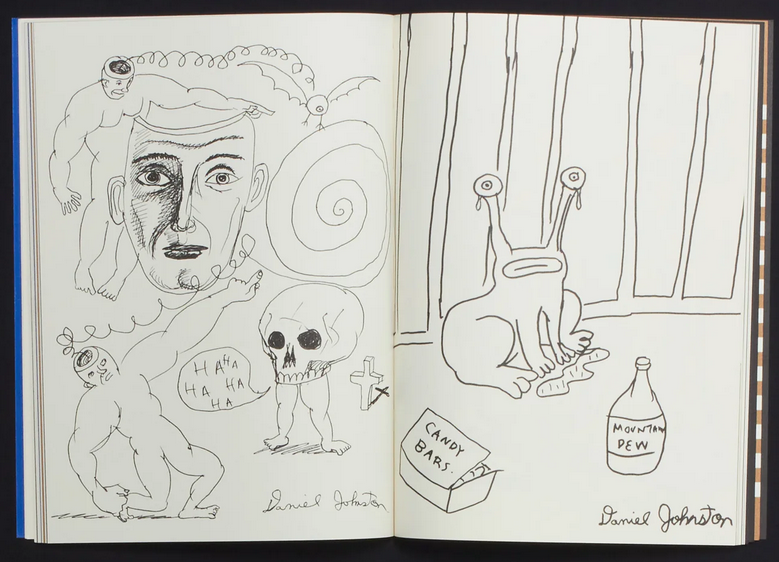 HAHA
HA HA
HA
Daniel Johnston
CANDY
BARS.
MOUNTAIN
DEW
Daniel Johnston